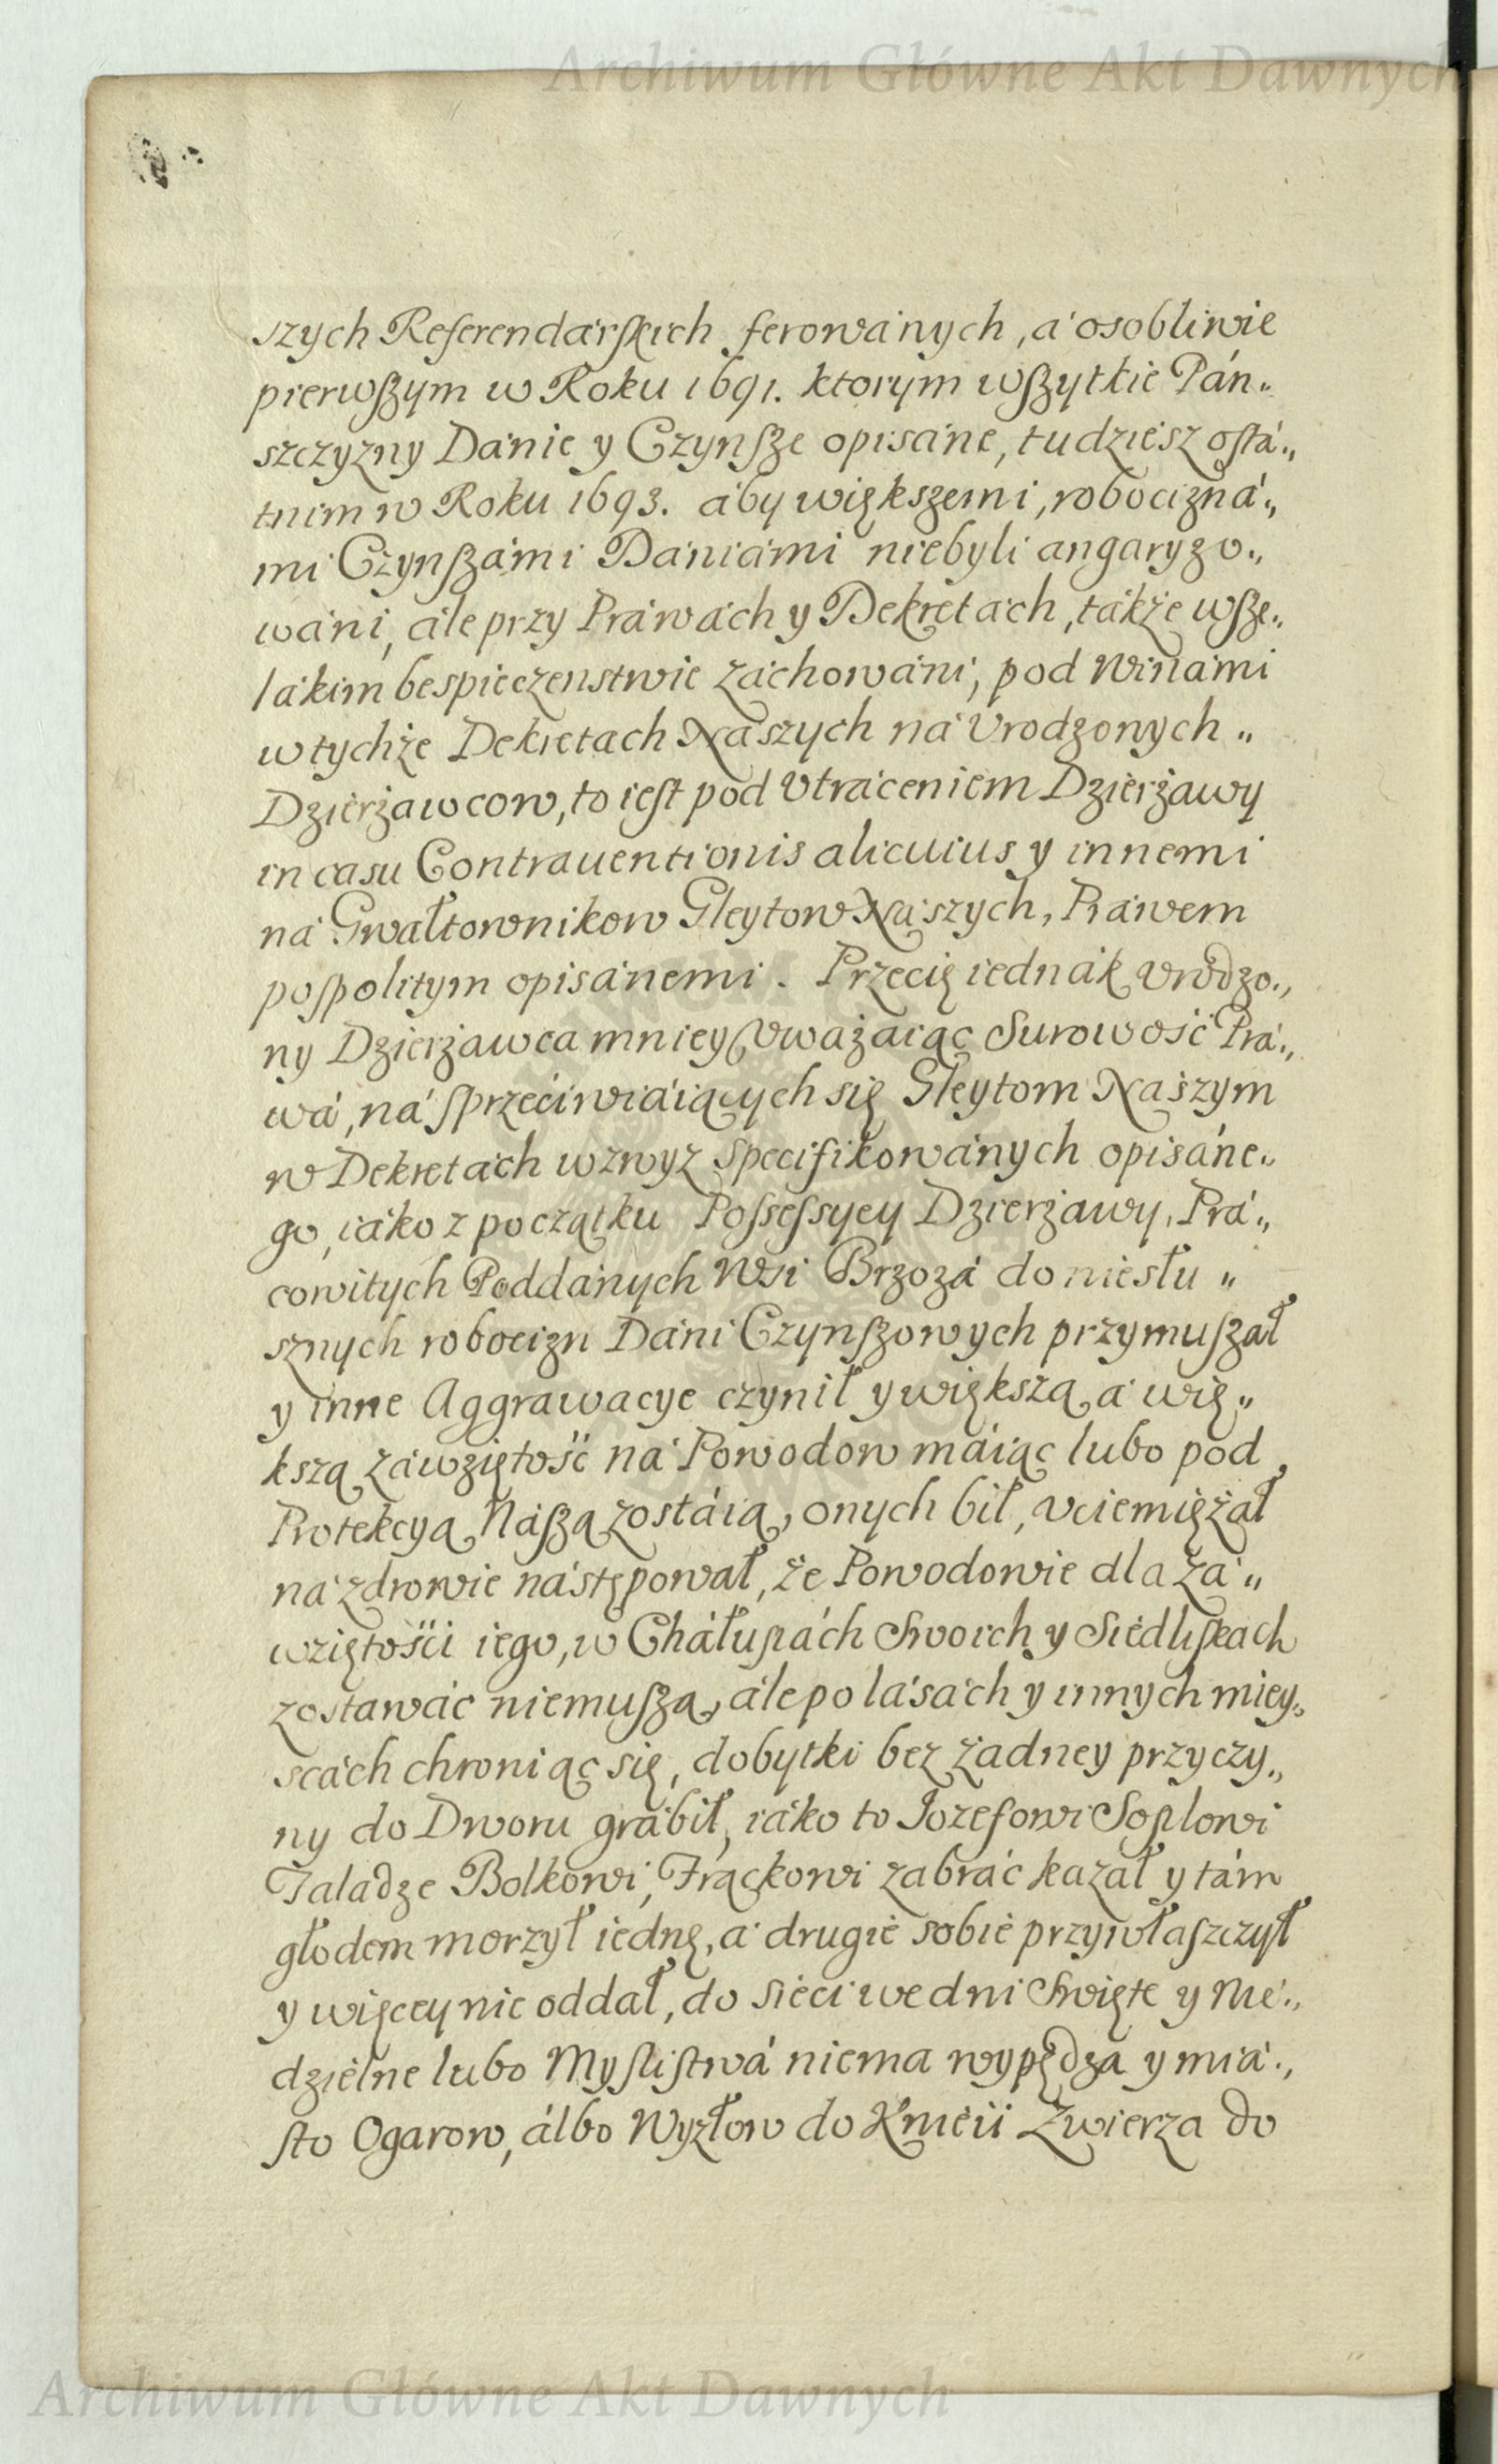 Archiwum Główne Akt Dawnych
szych Referendárſkich ferowánych, á osobliwie
pierwſzym w Roku 1691. ktorym wſzytkie Pán„
szczyzny Dánie y Czynſze opisáne, tudziesz oſtá„
tnim w Roku 1693. áby większemi, robociznά„
mi Czynſzámi Dániámi niebyli angaryzo„
wáni, ále przy Práwách y Dekretách, tákże wſze„
lákim bespieczenstwie záchowáni, pod Winámi
w tychże Dekretach Nászych ná Vrodzonych „
Dzierżawcow, to ieſt pod Vtráceniem Dzierżawy
in casu Contrauentionis alicuius y innemi
ná Gwałtownikow Gleytow Nászych, Práwem
poſpolitym opisánemi. Przecię iednák Vrodzo„
ny Dzierżawca mniey Vważaiąc Surowość Prá„
wá, ná ſprzeciwiáiących się Gleytom Nászym
w Dekretách wzwyz Specifikowánych opisáne„
go, iáko z początku Poſseſsyey Dzierżawy, Prá„
cowitych Poddánych Wsi Brzozá do niesłu „
sznych robocizn Dáni Czynſzowych przymuſzał
y inne Aggrawacye czynił y większą, á wię„
kszą záwziętość ná Powodow máiąc lubo pod
Protekcyą Náſzą zostáią, onych bił, vciemiężał
ná zdrowie nástępował, że Powodowie dla zá„
wziętości iego, w Cháłupách Swoich y Siedliſkach
zostawác niemuſzą, ále po lásách y innych miey„
scách chroniąc się, dobytki bez żadney przyczy„
ny do Dworu grábił, iáko to Jozefowi Soplowi
Taladze Bolkowi, Frąckowi zabráć kazał y tám
głodem morzył iednę, á drugie sobie przywłaſzczył
y więcey nie oddał, do Sieci we dni Swięte y Nie„
dzielne lubo Myſliſtwá niema wypędza y miá„
ſto Ogarow, álbo Wyzłow do Knieii Zwierza do
Archiwum Główne Akt Dawnych